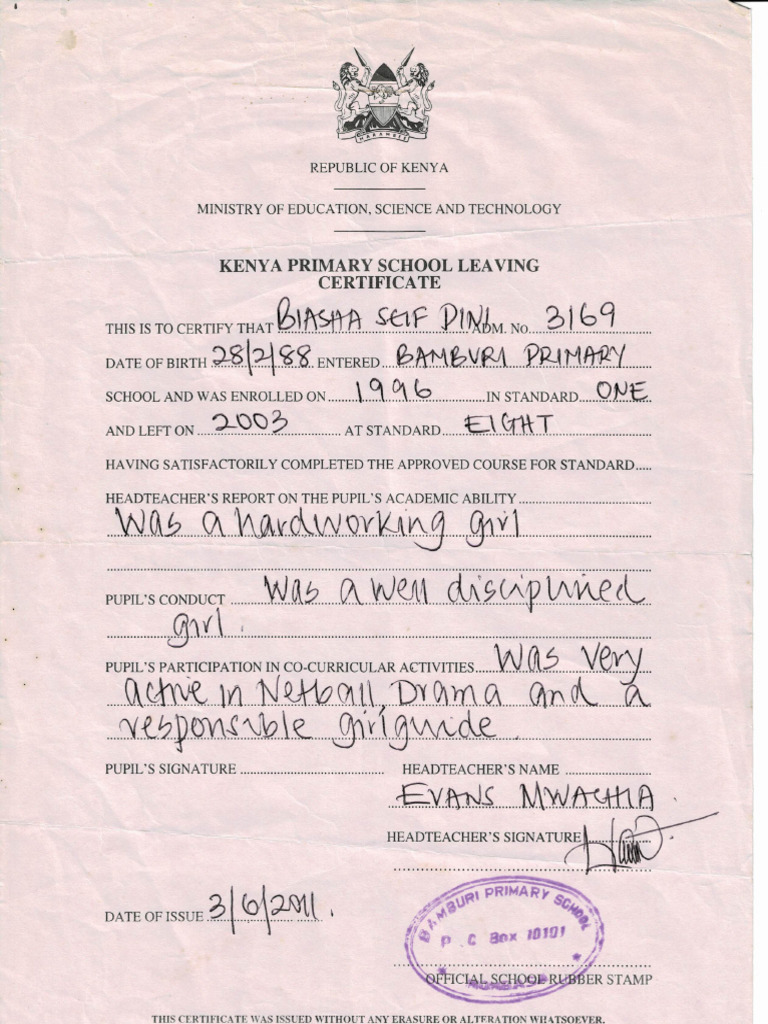 HARAMBEE
REPUBLIC OF KENYA
MINISTRY OF EDUCATION, SCIENCE AND TECHNOLOGY
KENYA PRIMARY SCHOOL LEAVING
CERTIFICATE
THIS IS TO CERTIFY THAT BIASHA SEIF DINI ADM. No. 3169
DATE OF BIRTH 28/2/88 ENTERED BAMBURI PRIMARY
SCHOOL AND WAS ENROLLED ON 1996 IN STANDARD ONE
AND LEFT ON 2003 AT STANDARD EIGHT
HAVING SATISFACTORILY COMPLETED THE APPROVED COURSE FOR STANDARD
HEADTEACHER'S REPORT ON THE PUPIL'S ACADEMIC ABILITY
Was a hardworking girl
PUPIL'S CONDUCT Was a well disciplined
girl.
PUPIL'S PARTICIPATION IN CO-CURRICULAR ACTIVITIES Was very
active in Netball, Drama and a
responsible girlguide.
PUPIL'S SIGNATURE HEADTEACHER'S NAME
EVANS MWACHIA.
HEADTEACHER'S SIGNATURE
DATE OF ISSUE 3/6/2011.
BAMBURI PRIMARY SCHOOL
P. O Box 10101
OFFICIAL SCHOOL RUBBER STAMP
THIS CERTIFICATE WAS ISSUED WITHOUT ANY ERASURE OR ALTERATION WHATSOEVER.